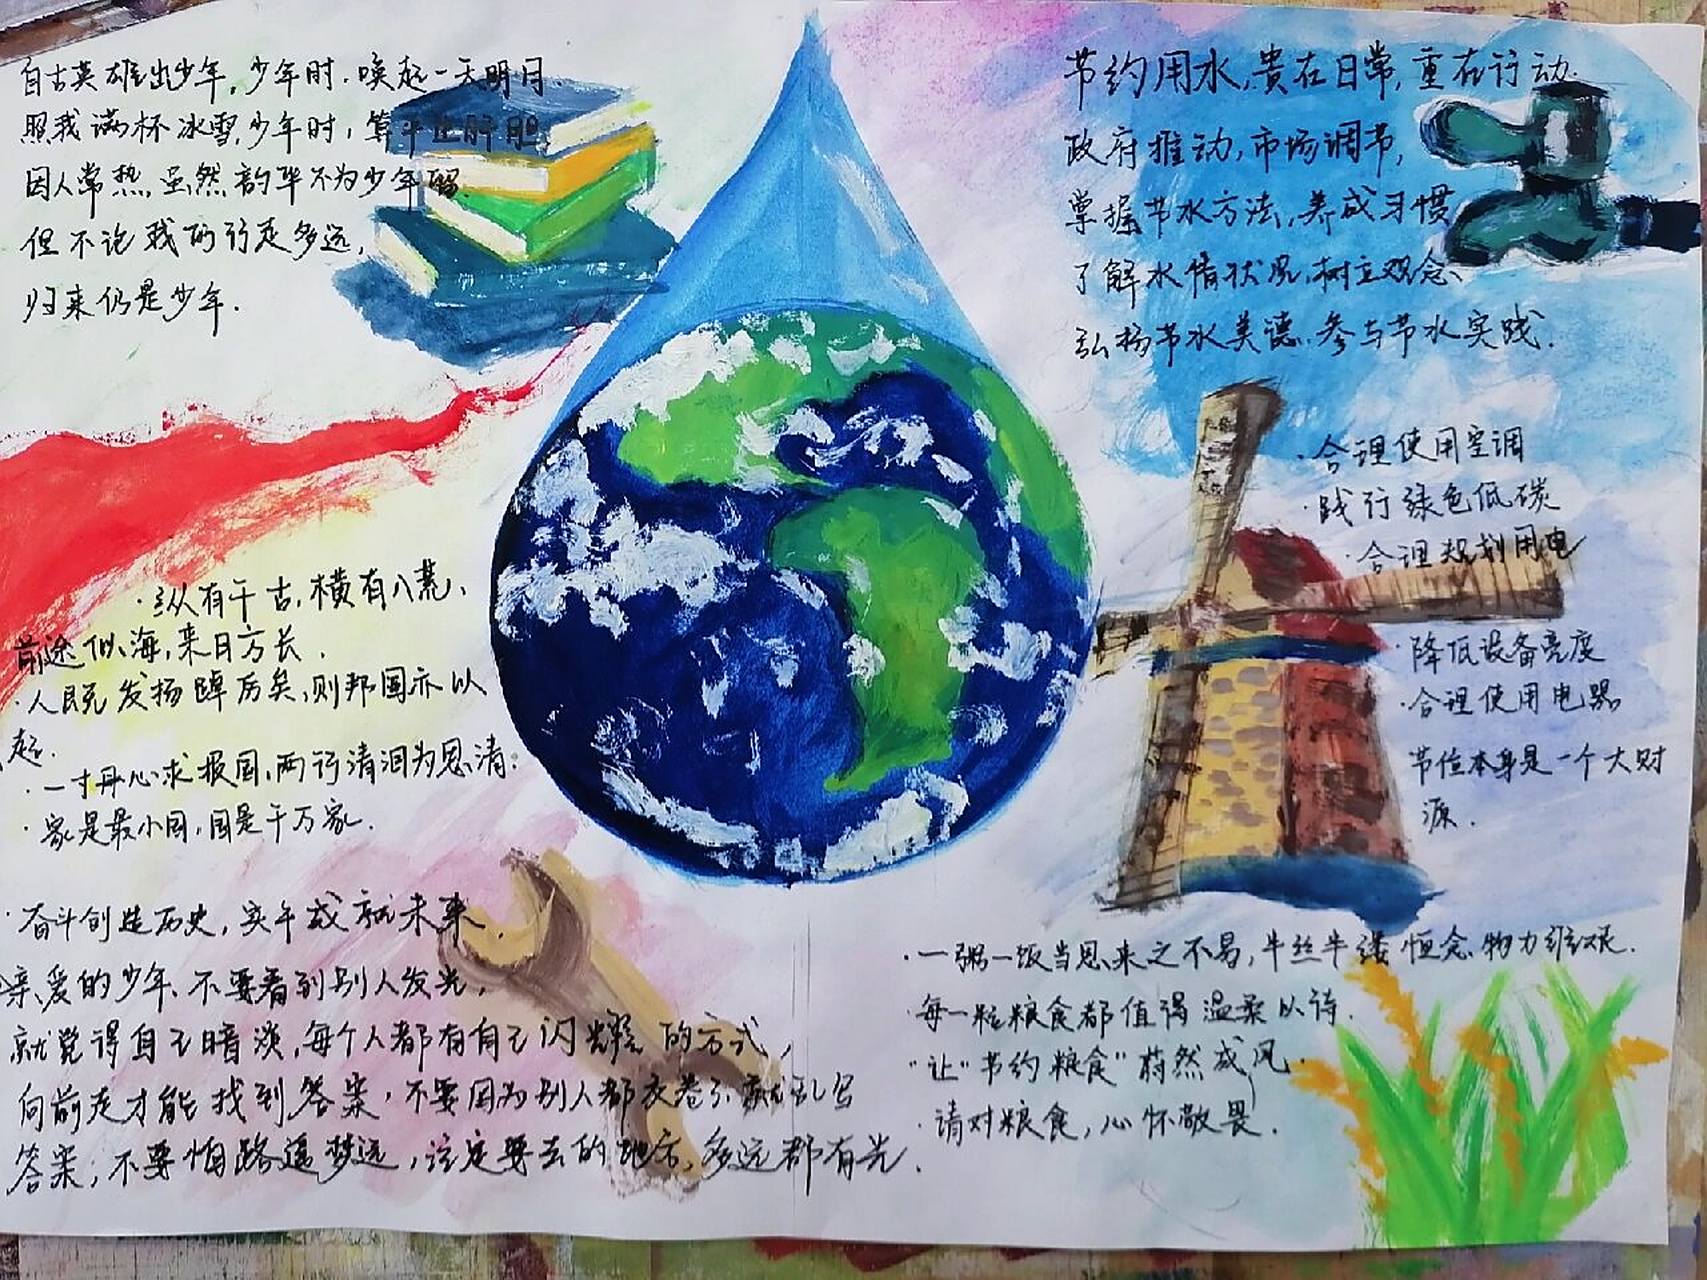 自古英雄出少年,少年时.唤起一天明月.
照我满杯冰雪,少年时,算斗 肝胆,
因人常热,虽然韵华不为少年留
但不论我的行走多远,
归来仍是少年.
·纵有千古,横有八荒,
前途似海,来日方长.
·人民既发扬踔厉矣,则邦国亦以
起.
·一寸丹心求报国,两行清泪为思清.
·家是最小国,国是千万家.
·奋斗创造历史,实干成就未来.
亲爱的少年、不要看到别人发光,
就觉得自己暗淡,每个人都有自己闪耀的方式,
向前走才能找到答案,不要因为别人都交卷了就乱写
答案,不要怕路遥梦远,注定要去的地方,多远都有光.
节约用水,贵在日常,重在行动.
政府推动,市场调节,
掌握节水方法,养成习惯
了解水情状况,树立观念、
弘扬节水美德.参与节水实践.
·合理使用空调
·践行绿色低碳
·合理规划用电
·降低设备亮度
·合理使用电器
节位本身是一个大财
源.
·一粥一饭当思来之不易,半丝半缕恒念物力维艰.
·每一粒粮食都值得温柔以待.
"让"节约粮食"蔚然成风.
·请对粮食,心怀敬畏.